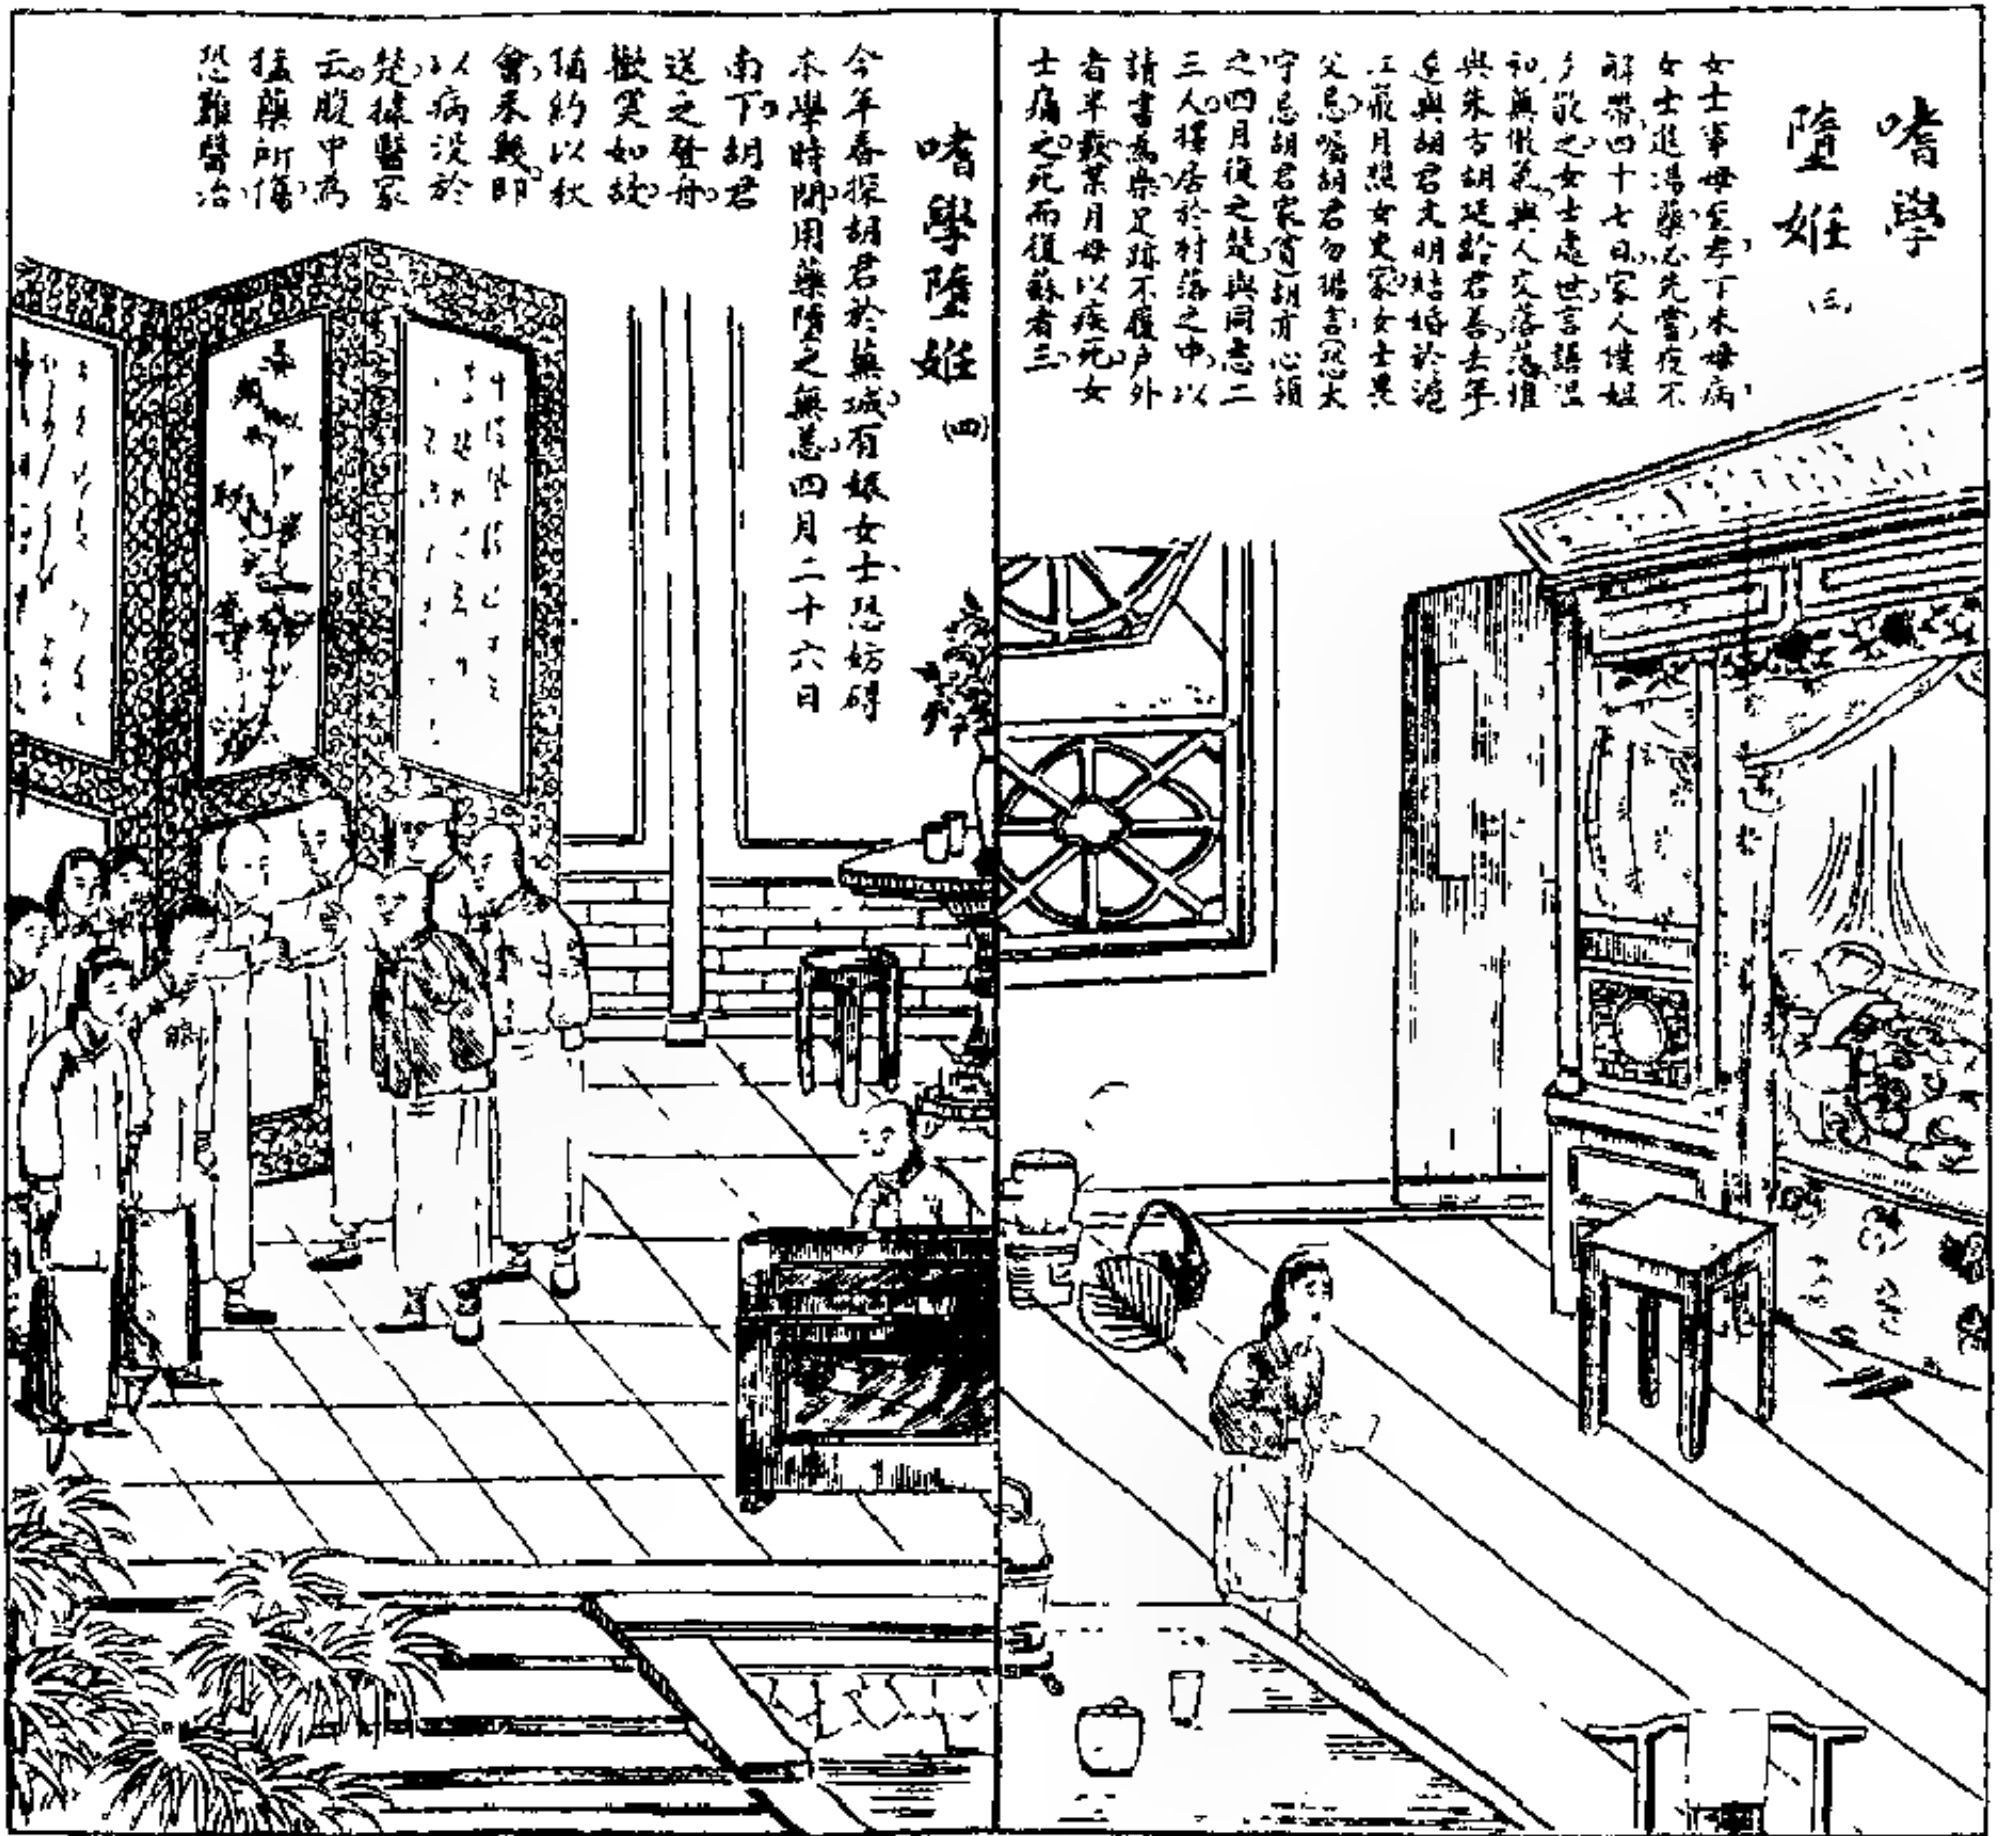 嗜學
墮姙
(三)
女士事母至孝丁未母病
女士進湯藥必先嘗夜不
解帶四十七日家人僕媼
敬之女士處世言語溫
和無傲氣與人交落落惟
與朱方胡延齡君善去年
遂與胡君文明結婚於滬
江嚴月照女史家女士畏
父忌囑胡君勿揚言(恐犬
守忌胡君家資)胡亦心領
之四月復之楚與同志二
三人擇居於村落之中以
請書為樂足跡不履戶外
者半載葉月母以疾死女
士痛之死而復蘇者三
嗜學墮姙
(四)
今年春探胡君於蕪城有娠女士恐妨礙
本學時間用藥墮之無恙四月二十六日
南下胡君
送之登舟
歡笑如故
猶約以秋
會未幾即
以病沒於
楚據醫家
云腹中為
猛藥所傷
恐難醫治